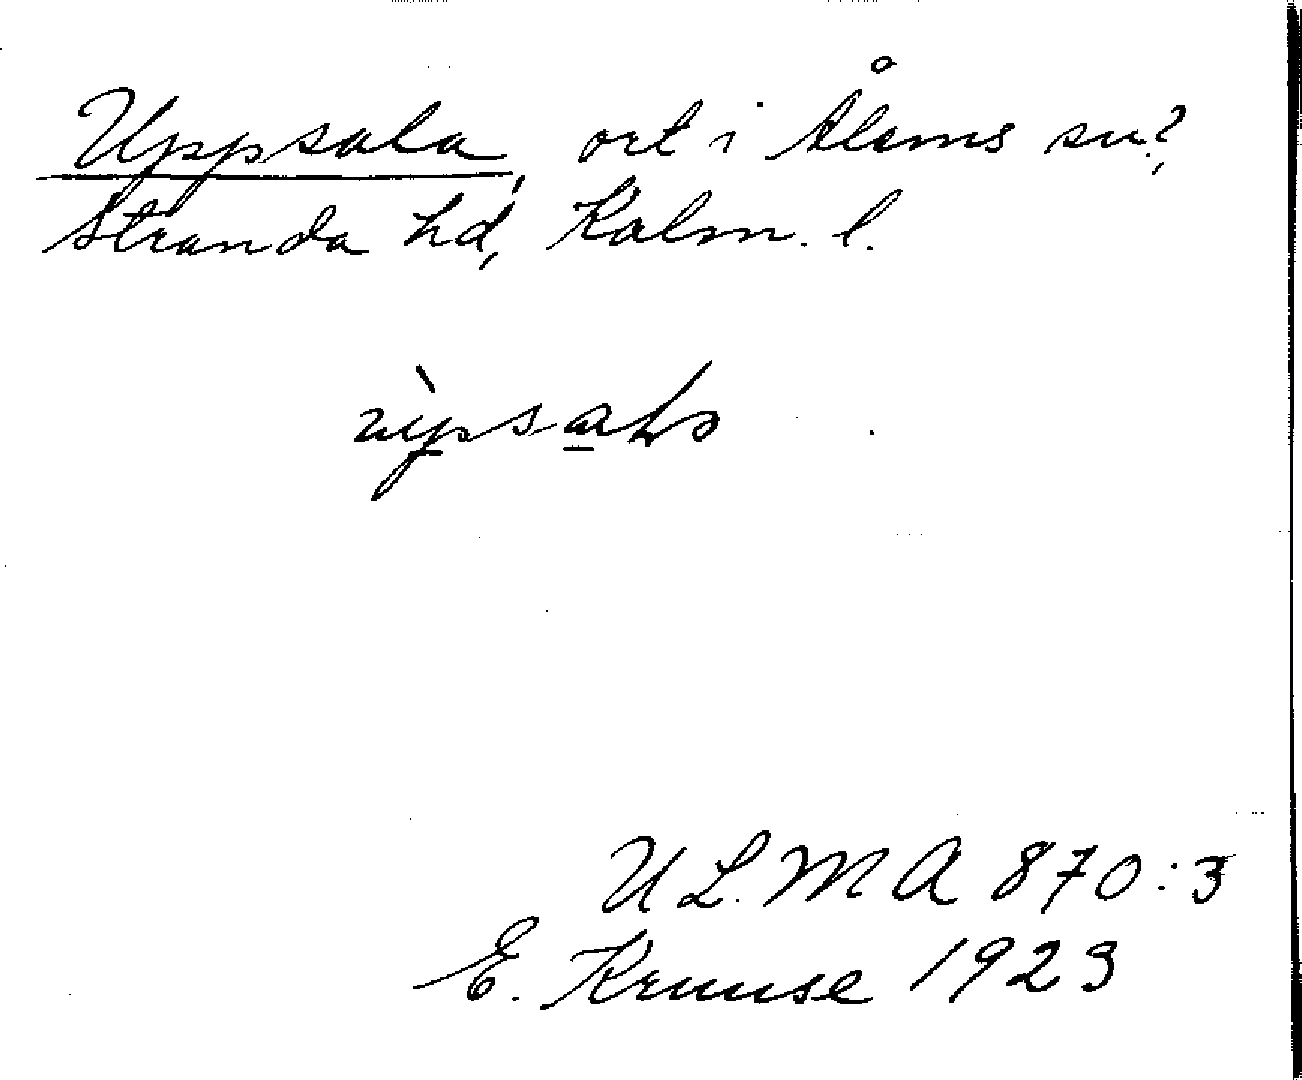 Uppsala, ort i Ålems sn?,
Stranda hd, Kalm. l.
ULMA 870:3
E. Kruuse 1923